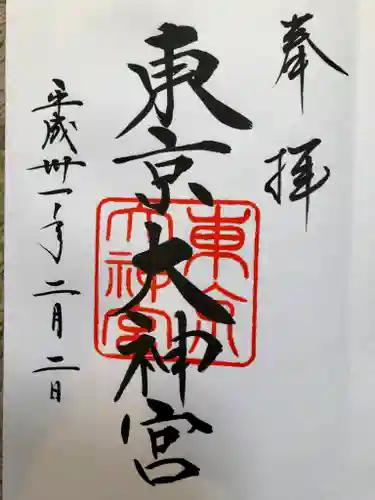 奉拝
東京大神宮
東京大神宮
平成卅一年二月二日